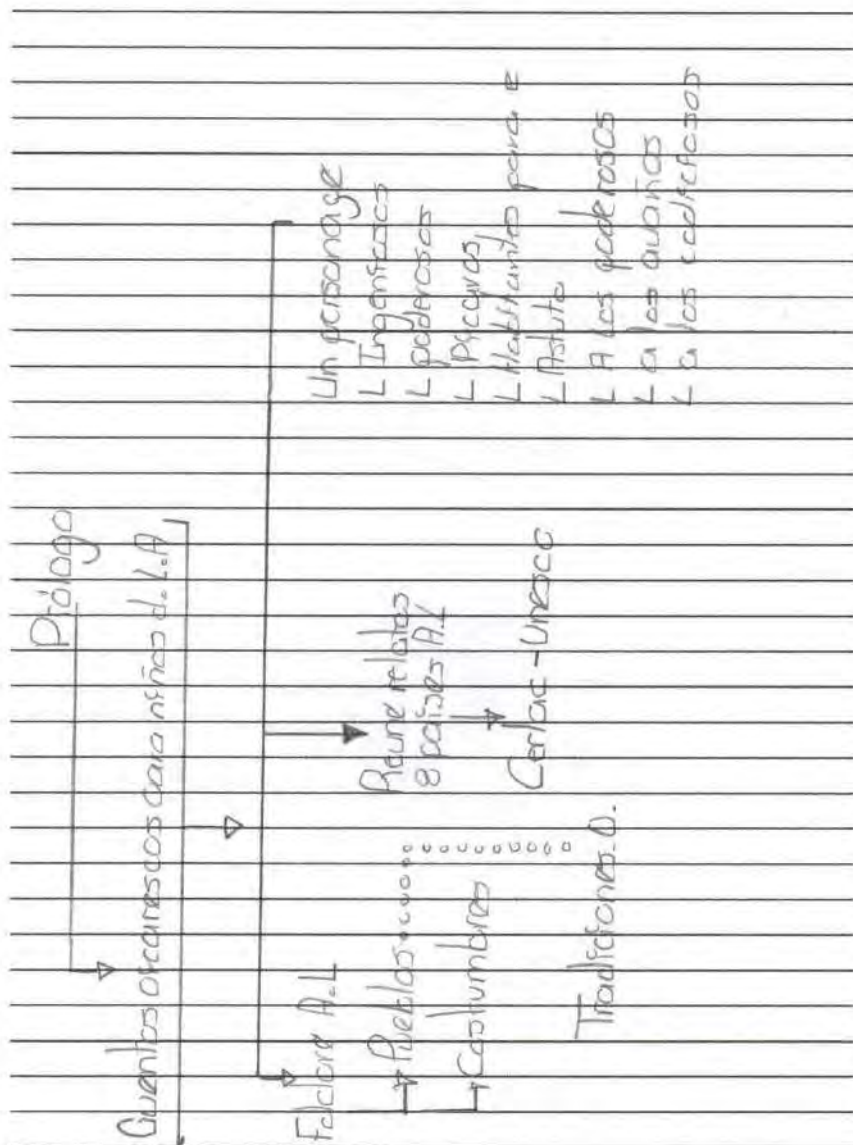 Prólogo
Cuentos picarescos para niños d. L.A
Folclore A.L
Pueblos
Costumbres
Tradiciones O.
Reune relatos
8 países A.L
Cerlac - Unesco
Un personage
Ingeniosos
poderosos
Pícaros
Habitantes para e
Astuto
A los poderosos
a los avaros
a los codiciosos